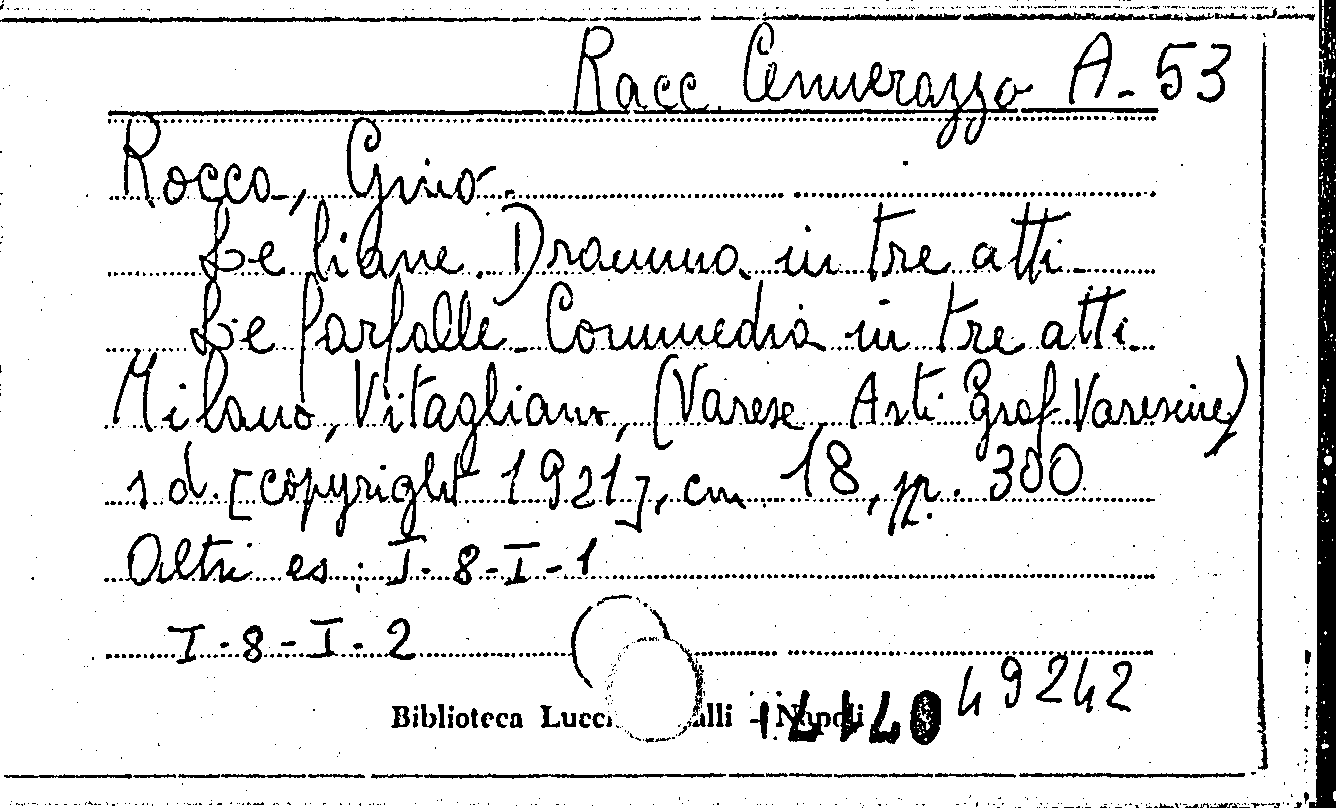 Racc. Cennerazzo A-53
Rocca, Gino.
Le liane. Dramma in tre atti -
Le farfalle - Commedia in tre atti -
Milano, Vitagliano, (Varese, Arti Graf. Varesine)
s d. [copyright 1921], cm 18, pp. 300
Altri es: I-8-I-1
I-8-I-2
Biblioteca Lucc alli - Napoli
49242